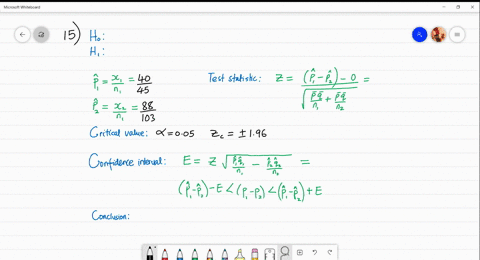 Microsoft Whiteboard
15) H₀:
H₁:
p̂₁ = x₁/n₁ = 40/45
Test statistic: z = ((p̂₁-p̂₂) - 0) / √(p̄q̄/n₁ + p̄q̄/n₂) =
p̂₂ = x₂/n₁ = 88/103
Critical value: α=0.05 z꜀ = ±1.96
Confidence interval: E = z √(p̂₁q̂₁/n₁ - p̂₂q̂₂/n₂) =
(p̂₁-p̂₂)-E < (p₁-p₂) < (p̂₁-p̂₂)+E
Conclusion: